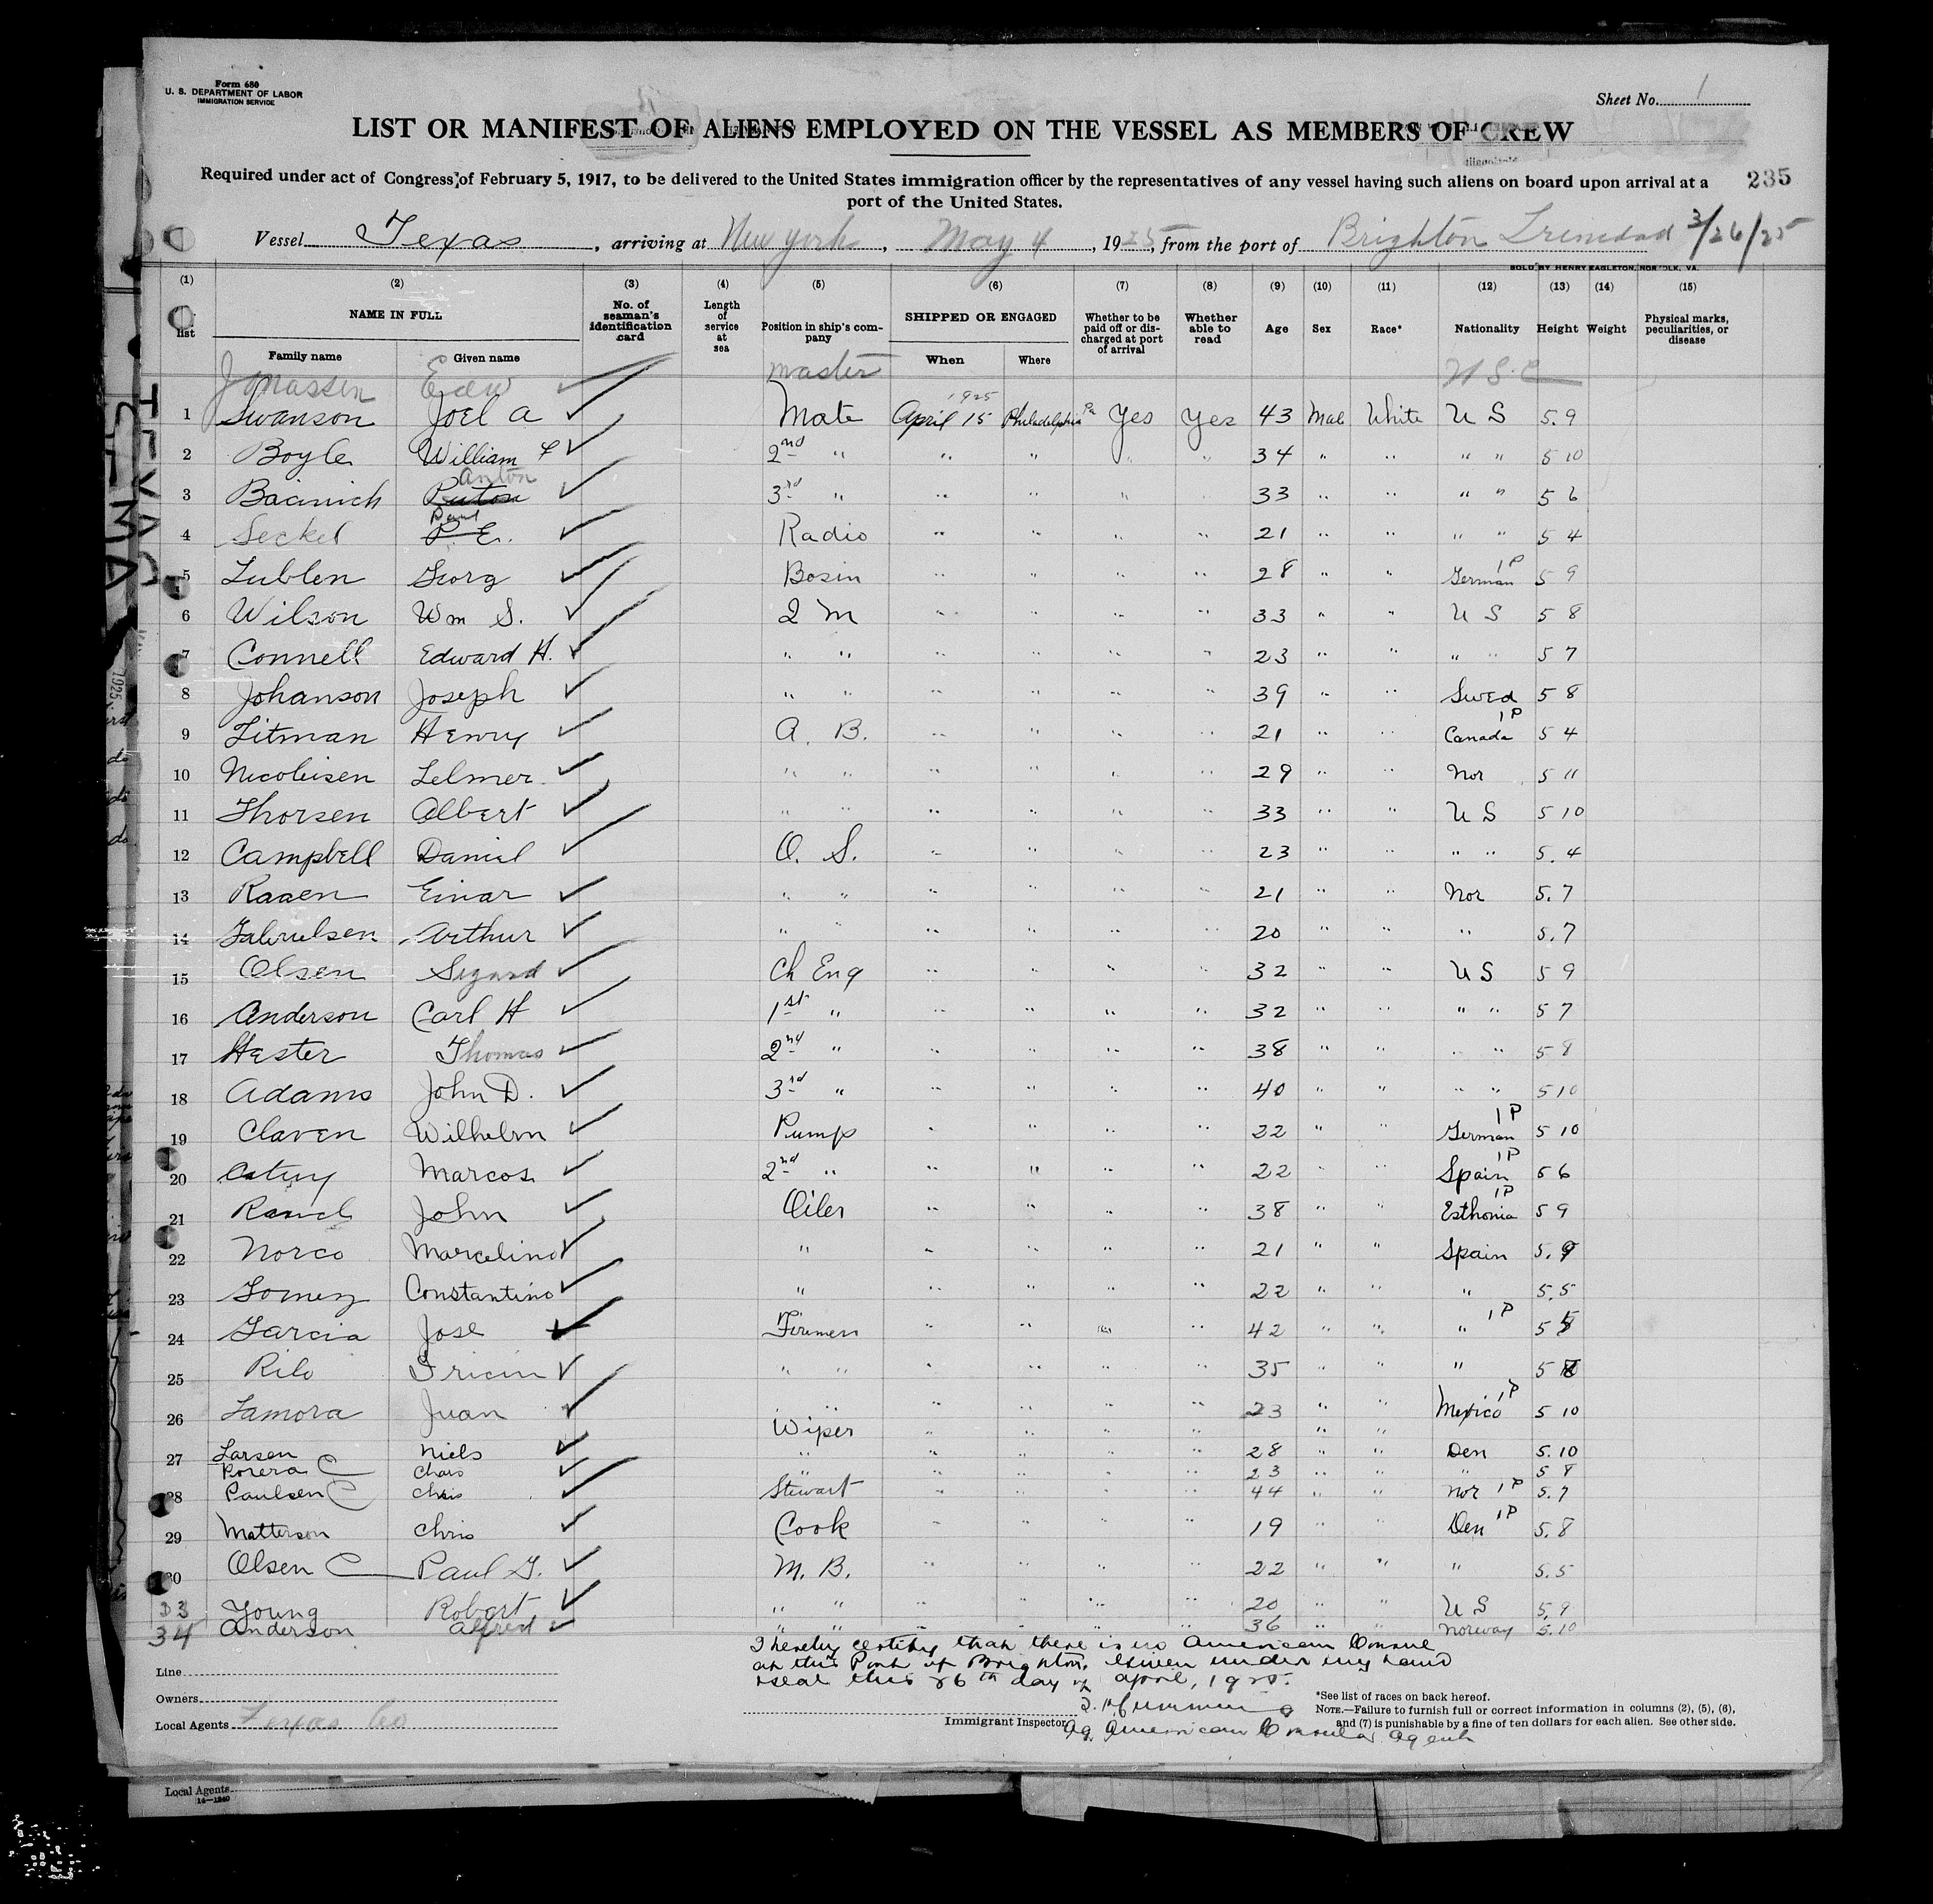 Form 680
U. S. DEPARTMENT OF LABOR
IMMIGRATION SERVICE
Sheet No. 1
LIST OR MANIFEST OF ALIENS EMPLOYED ON THE VESSEL AS MEMBERS OF CREW
Required under act of Congress of February 5, 1917, to be delivered to the United States immigration officer by the representatives of any vessel having such aliens on board upon arrival at a
port of the United States.
235
Vessel Texas, arriving at New York, May 4, 1925, from the port of Brighton Trinidad 3/26/25
SOLD BY HENRY EAGLETON, NORFOLK, VA.
(1) (2) (3) (4) (5) (6) (7) (8) (9) (10) (11) (12) (13) (14) (15)
list NAME IN FULL Family name Given name No. of seaman's identification card Length of service at sea Position in ship's company SHIPPED OR ENGAGED When Where Whether to be paid off or discharged at port of arrival Whether able to read Age Sex Race* Nationality Height Weight Physical marks, peculiarities, or disease
Jonassen master U S C
1 Swanson Joel A Mate April 15 1925 Philadelphia Pa Yes Yes 43 Mal White U S 5.9
2 Boyle William 2nd " " " " " 34 " " " " 5 10
3 Bacinich Anton 3rd " " " " " 33 " " " " 5 6
4 Seckel Paul P E. Radio " " " " 21 " " " " 5 4
5 Lublen Georg Bosin " " " " 28 " " German 1P 5 9
6 Wilson Wm S. 2 M " " " " 33 " " U S 5 8
7 Connell Edward H. " " " " " " 23 " " " " 5 7
8 Johanson Joseph " " " " " " 39 " " Swed 5 8
9 Litman Henry A. B. " " " " 21 " " Canada 1P 5 4
10 Nicolaisen " " " " " " 29 " " Nor 5 11
11 Thorsen Albert " " " " " " 33 " " U S 5 10
12 Campbell Daniel O. S. " " " " 23 " " " " 5.4
13 Raaen Einar " " " " " " 21 " " Nor 5.7
14 Gabrielsen Arthur " " " " " " 20 " " " 5.7
15 Olsen Sigurd Ch Eng " " " " 32 " " U S 5 9
16 Anderson Carl H 1st " " " " " 32 " " " " 5 7
17 Hester Thomas 2nd " " " " " 38 " " " " 5 8
18 Adams John D. 3rd " " " " " 40 " " " " 5 10
19 Claven Wilhelm Pump " " " " 22 " " German 1P 5 10
20 Marcos 2nd " " " " " 22 " " Spain 1P 5 6
21 John Oiler " " " " 38 " " Esthonia 1P 5 9
22 Norco Marcelino " " " " " 21 " " Spain 5.9
23 Gomez Constantino " " " " " 22 " " " 5.5
24 Garcia Jose Firemen " " " " 42 " " " 1P 5
25 Rilo " " " " " " 35 " " " 5
26 Zamora Juan " " " " " " 23 " " Mexico 1P 5 10
Wiper " " " " " "
27 Larsen Niels " " " " " 28 " " Den 5.10
Chas " " " " " 23 " " " 5 8
28 Paulsen Chris Stewart " " " " 44 " " Nor 1P 5.7
29 Matterson Chris Cook " " " " 19 " " Den 1P 5.8
30 Olsen Paul G. M. B. " " " " 22 " " " 5.5
33 Young Robert " " " " " " 20 " " U S 5.9
34 Anderson Alfred " " " " " " 36 " " Norway 5.10
I hereby certify that there is no American Consul
at this Port of Brighton. Given under my hand
& seal this 26th day of April, 1925.
Line
Owners
Local Agents Texas Co
Immigrant Inspector
Ag. American Consular Agent
*See list of races on back hereof.
NOTE.—Failure to furnish full or correct information in columns (2), (5), (6),
and (7) is punishable by a fine of ten dollars for each alien. See other side.
Local Agents
14—1240